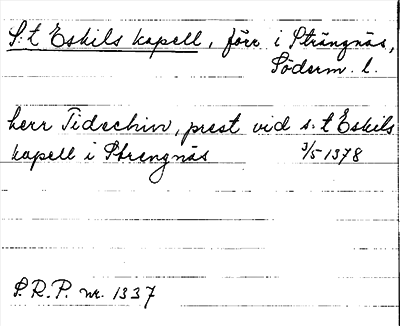 S:t Eskils kapell, förr i Strängnäs,
Söderm. l.
herr Tidechin, prest vid s:t Eskils
kapell i Strengnäs 3/5 1378
S.R.P. nr. 1337